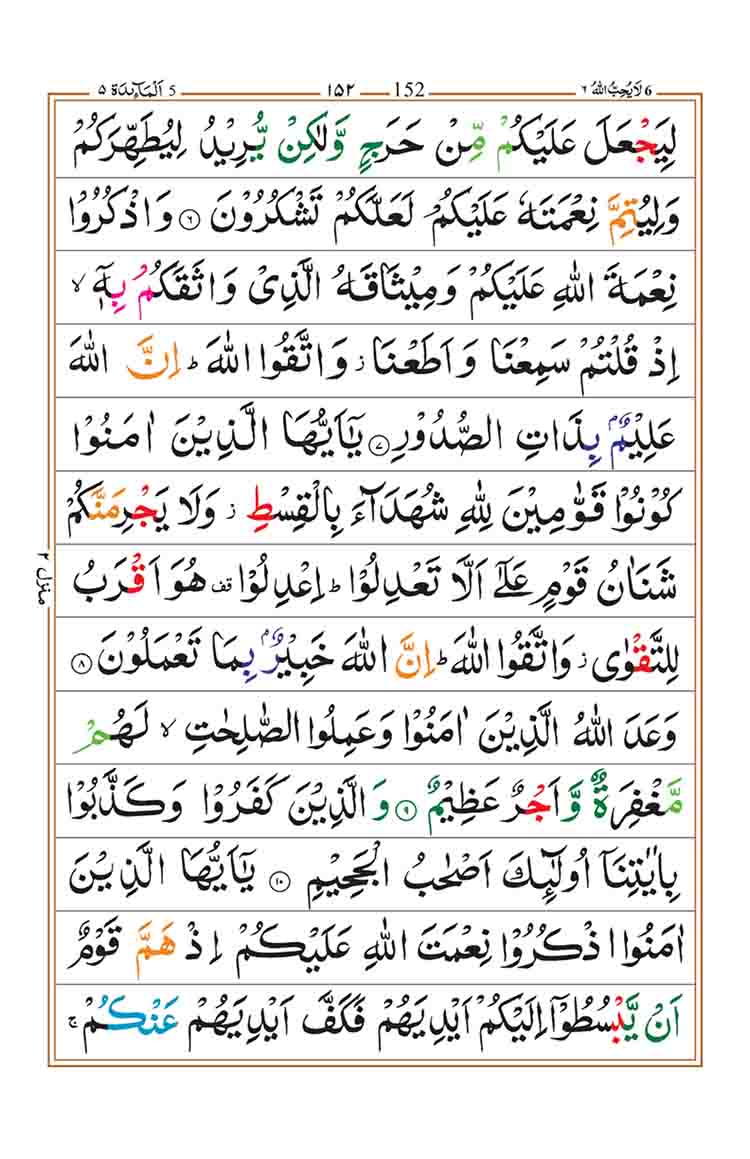 6 لَا يُحِبُّ اللهُ ٦ 152 ١٥٢ 5 اَلْمَآئِدَة ٥
لِيَجْعَلَ عَلَيْكُمْ مِّنْ حَرَجٍ وَّلٰكِنْ يُّرِيْدُ لِيُطَهِّرَكُمْ
وَلِيُتِمَّ نِعْمَتَهٗ عَلَيْكُمْ لَعَلَّكُمْ تَشْكُرُوْنَ ۝٦ وَاذْكُرُوْا
نِعْمَةَ اللهِ عَلَيْكُمْ وَمِيْثَاقَهُ الَّذِىْ وَاثَقَكُمْ بِهٖۤ ۙ
اِذْ قُلْتُمْ سَمِعْنَا وَاَطَعْنَا ز وَاتَّقُوا اللهَ ؕ اِنَّ اللهَ
عَلِيْمٌۢ بِذَاتِ الصُّدُوْرِ ۝٧ يٰۤاَيُّهَا الَّذِيْنَ اٰمَنُوْا
كُوْنُوْا قَوّٰمِيْنَ لِلّٰهِ شُهَدَآءَ بِالْقِسْطِ ز وَلَا يَجْرِمَنَّكُمْ
شَنَاٰنُ قَوْمٍ عَلٰٓى اَلَّا تَعْدِلُوْا ؕ اِعْدِلُوْا قف هُوَ اَقْرَبُ
لِلتَّقْوٰى ز وَاتَّقُوا اللهَ ؕ اِنَّ اللهَ خَبِيْرٌۢ بِمَا تَعْمَلُوْنَ ۝٨
وَعَدَ اللهُ الَّذِيْنَ اٰمَنُوْا وَعَمِلُوا الصّٰلِحٰتِ ۙ لَهُمْ
مَّغْفِرَةٌ وَّاَجْرٌ عَظِيْمٌ ۝٩ وَالَّذِيْنَ كَفَرُوْا وَكَذَّبُوْا
بِاٰيٰتِنَاۤ اُولٰٓئِكَ اَصْحٰبُ الْجَحِيْمِ ۝١٠ يٰۤاَيُّهَا الَّذِيْنَ
اٰمَنُوا اذْكُرُوْا نِعْمَتَ اللهِ عَلَيْكُمْ اِذْ هَمَّ قَوْمٌ
اَنْ يَّبْسُطُوْۤا اِلَيْكُمْ اَيْدِيَهُمْ فَكَفَّ اَيْدِيَهُمْ عَنْكُمْ ۚ
منزل ٢